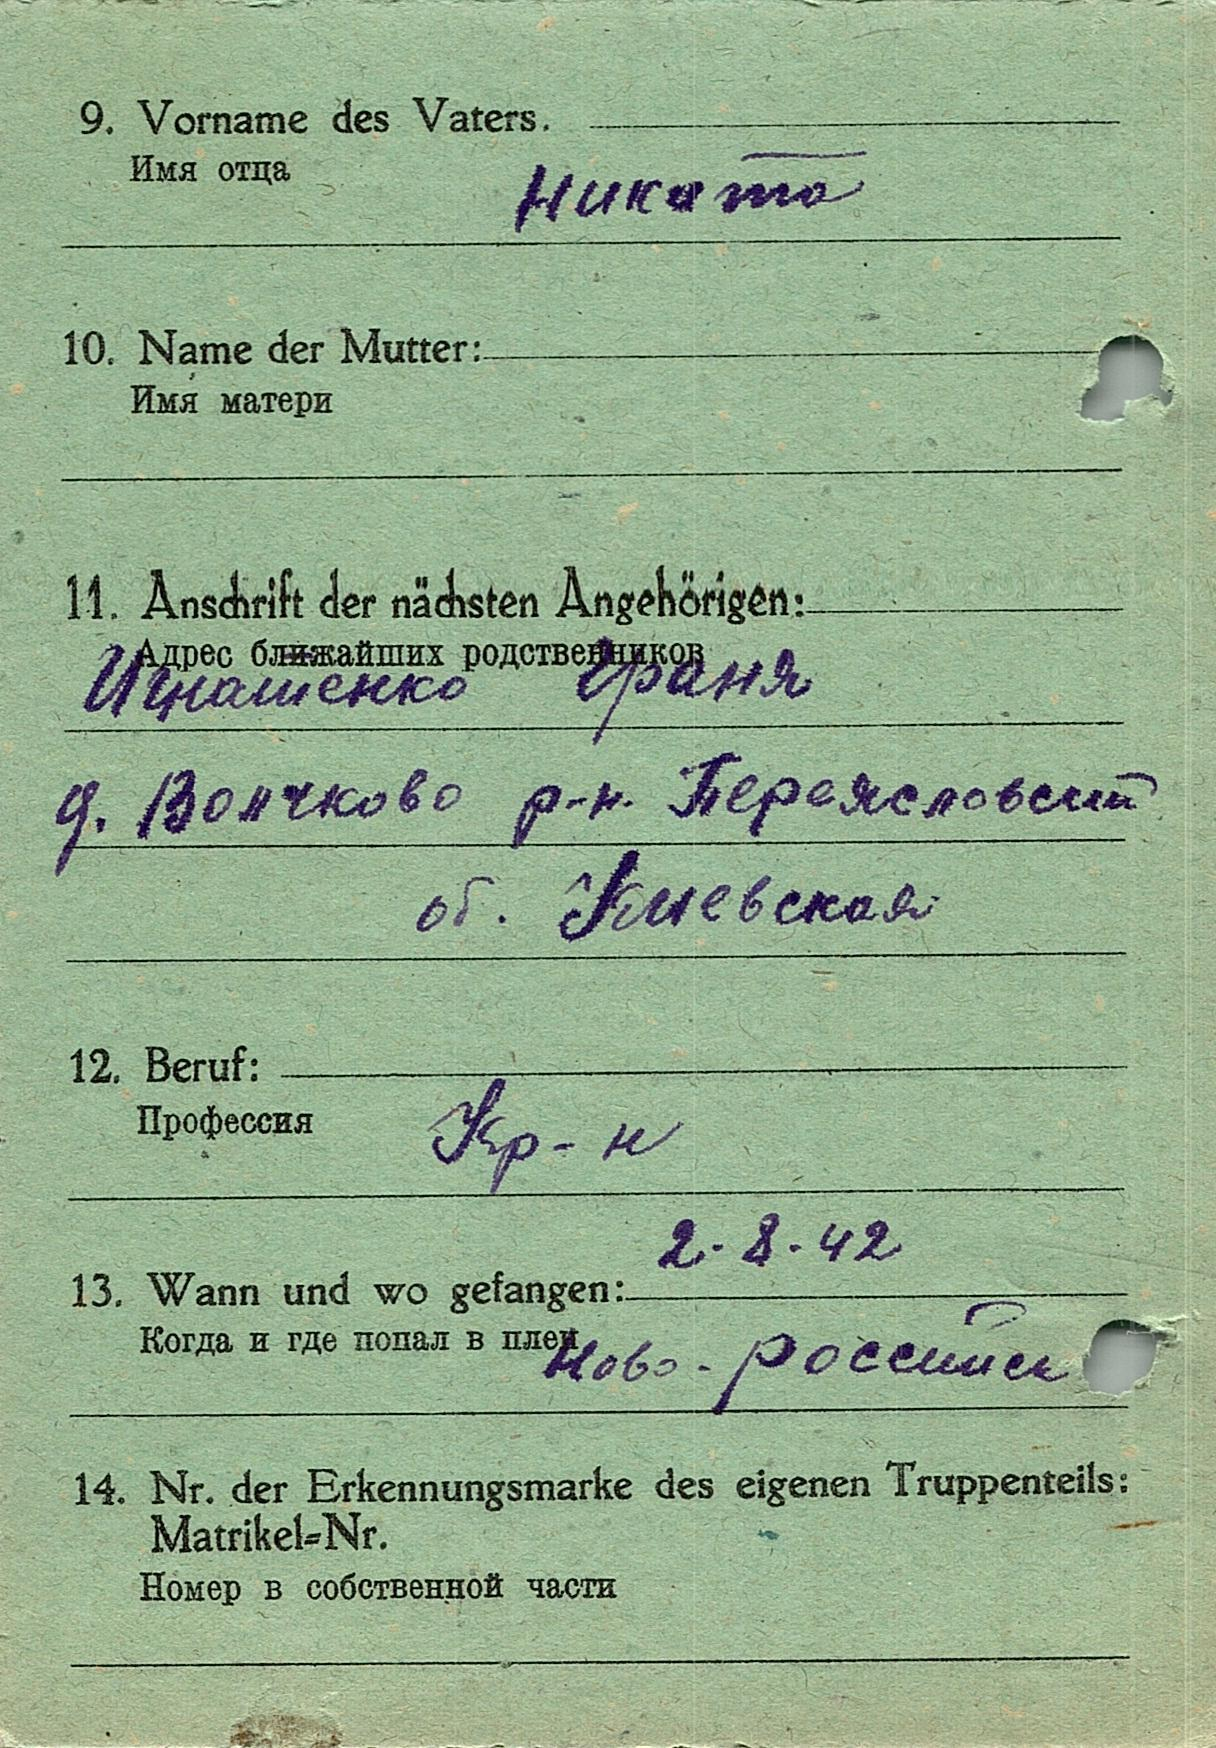 9. Vorname des Vaters.
Имя отца
Никата
10. Name der Mutter:
Имя матери
11. Anschrift der nächsten Angehörigen:
Адрес ближайших родственников
Игнашенко Франя
д. Волчково р-н. Переясловский
об. Киевская
12. Beruf:
Профессия
Кр-н
2.8.42
13. Wann und wo gefangen:
Когда и где попал в плен
Ново-российск
14. Nr. der Erkennungsmarke des eigenen Truppenteils:
Matrikel=Nr.
Номер в собственной части